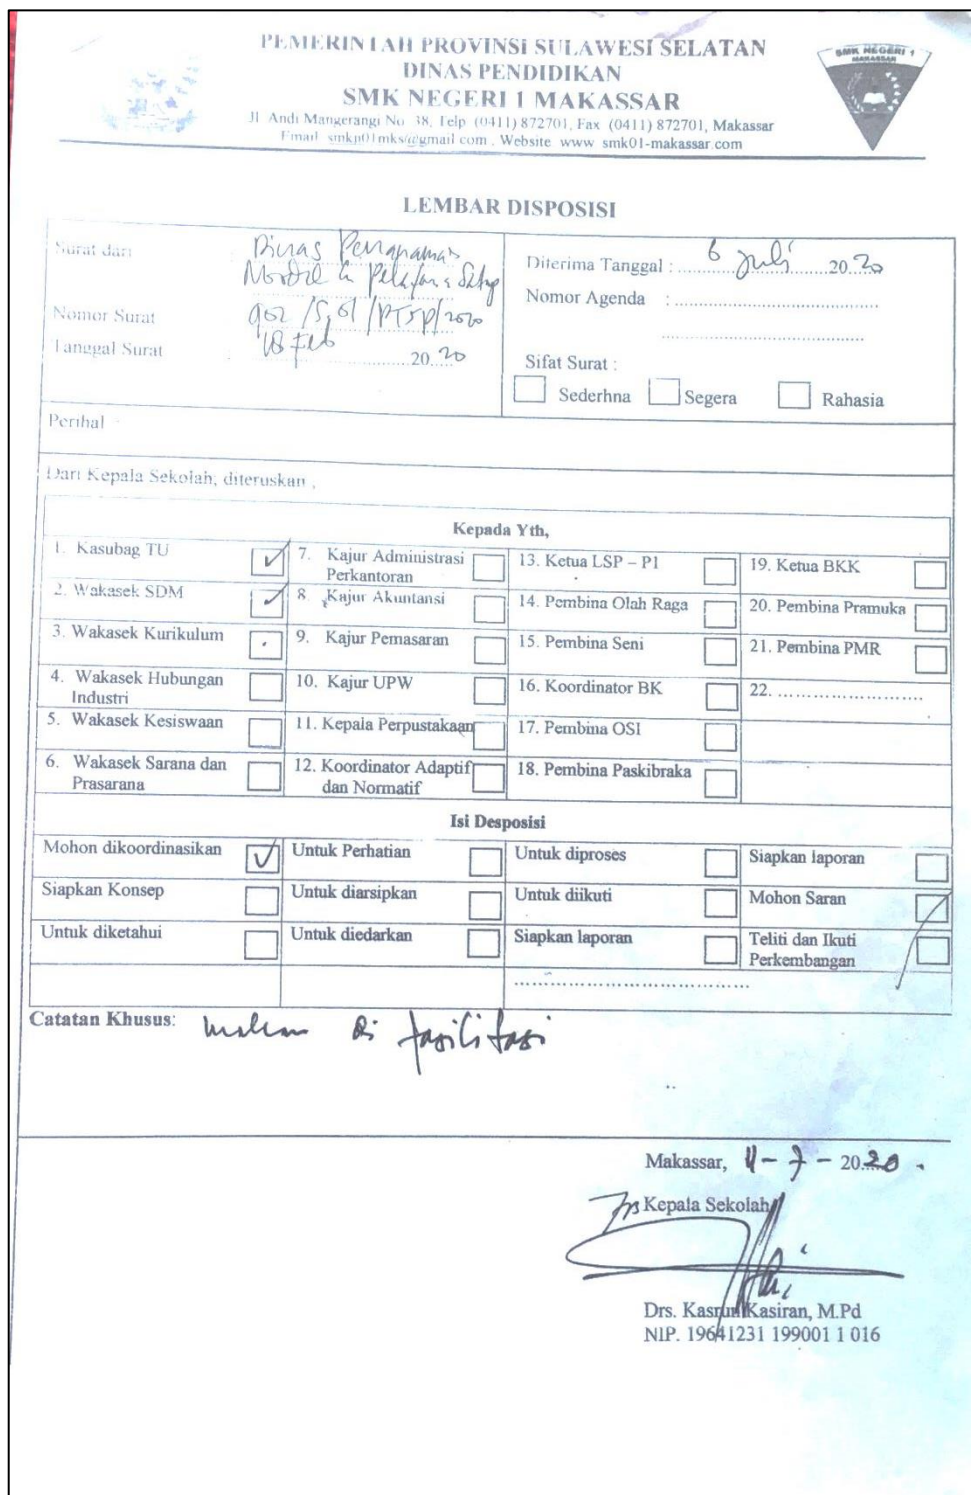 PEMERINTAH PROVINSI SULAWESI SELATAN
DINAS PENDIDIKAN
SMK NEGERI 1 MAKASSAR
Jl Andi Mangerangi No 38, Telp (0411) 872701, Fax (0411) 872701, Makassar
Email smkn01mks@gmail.com, Website www smk01-makassar.com
SMK NEGERI 1
MAKASSAR
LEMBAR DISPOSISI
Surat dari Dinas Penanaman
Modal &
Nomor Surat /PTSP/2020
Tanggal Surat : 18 Feb 20.20
Diterima Tanggal : 6 Juli 20.20
Nomor Agenda :
Sifat Surat :
Sederhna Segera Rahasia
Perihal
Dari Kepala Sekolah, diteruskan ,
Kepada Yth,
1. Kasubag TU ✓ 7. Kajur Administrasi Perkantoran 13. Ketua LSP – P1 19. Ketua BKK
2. Wakasek SDM ✓ 8. Kajur Akuntansi 14. Pembina Olah Raga 20. Pembina Pramuka
3. Wakasek Kurikulum 9. Kajur Pemasaran 15. Pembina Seni 21. Pembina PMR
4. Wakasek Hubungan Industri 10. Kajur UPW 16. Koordinator BK 22. ........................
5. Wakasek Kesiswaan 11. Kepala Perpustakaan 17. Pembina OSI
6. Wakasek Sarana dan Prasarana 12. Koordinator Adaptif dan Normatif 18. Pembina Paskibraka
Isi Desposisi
Mohon dikoordinasikan ✓ Untuk Perhatian Untuk diproses Siapkan laporan
Siapkan Konsep Untuk diarsipkan Untuk diikuti Mohon Saran
Untuk diketahui Untuk diedarkan Siapkan laporan Teliti dan Ikuti Perkembangan
Catatan Khusus: di fasilitasi
Makassar, - 7 - 20.20
Kepala Sekolah
Drs. Kasiran, M.Pd
NIP. 19641231 199001 1 016